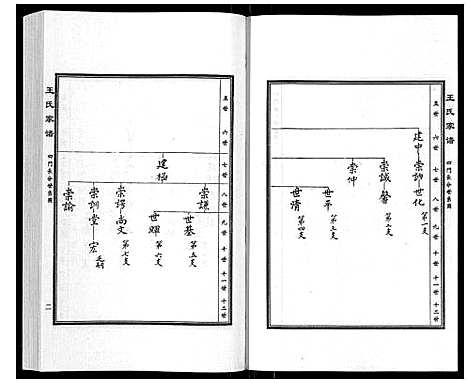 王氏家譜
四門長分世系圖
五世 六世 七世 八世 九世 十世 十一世 十二世
建中 崇訥 世化 第一支
崇誠 馨 第二支
崇仲
世平 第三支
世清 第四支
王氏家譜
四門長分世系圖
二
五世 六世 七世 八世 九世 十世 十一世 十二世
建極
崇謙
世基 第五支
世曜 第六支
崇謬 尚文 第七支
崇訓 堂 宏 乏嗣
崇諭